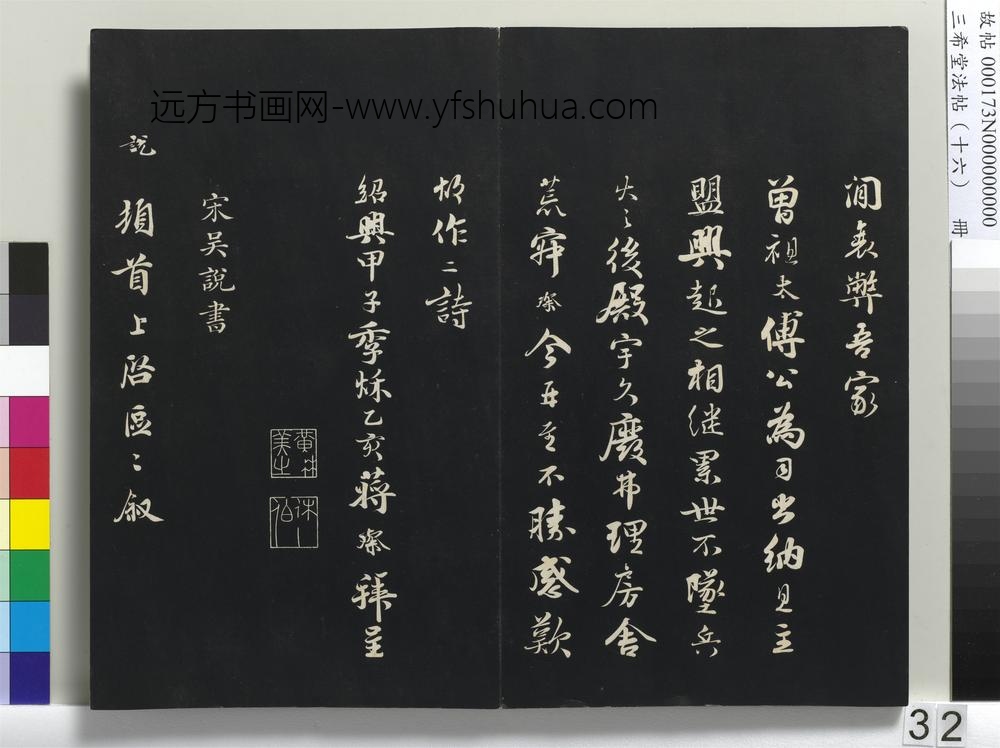 故帖 000173N000000000
三希堂法帖(十六) 册
远方书画网-www.yfshuhua.com
閒衰弊吾家
曾祖太傅公為司出納且主
盟興起之相继累世不墜兵
火之後殿宇久廢弗理房舍
荒寂璨今再至不勝感歎
作二詩
紹興甲子季秌乙亥蔣璨拜呈
宋吳說書
說頓首上啓區〻叙
32